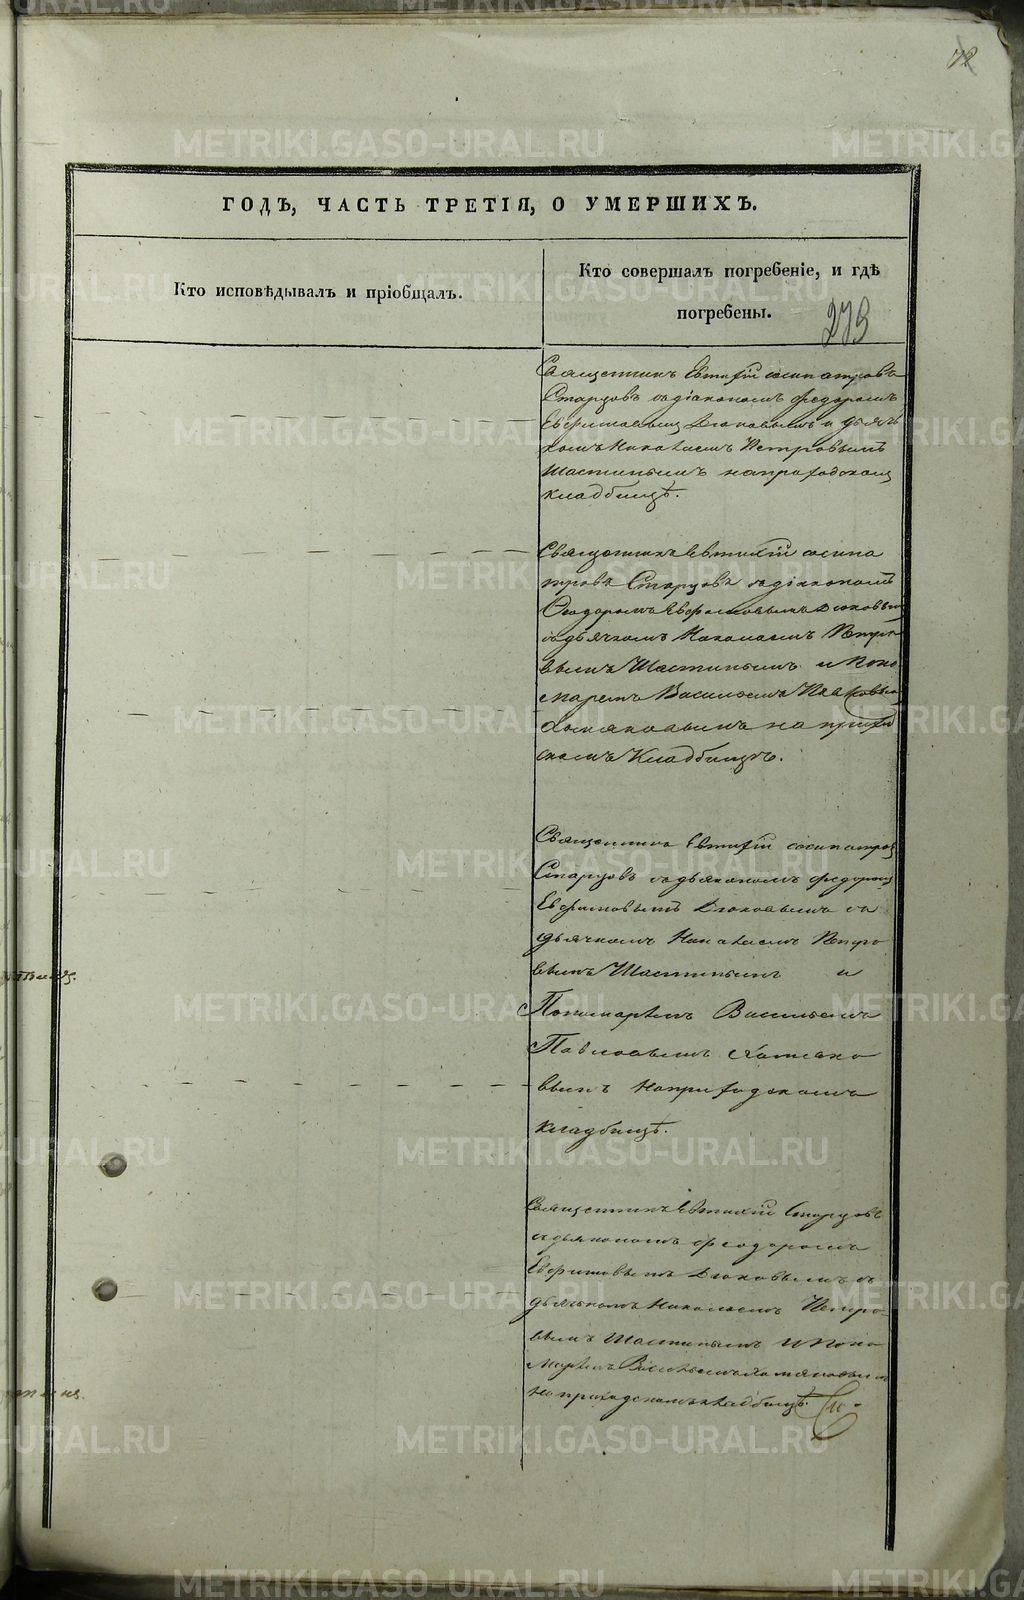 ГОДЪ, ЧАСТЬ ТРЕТІЯ, О УМЕРШИХЪ.
Кто исповѣдывалъ и пріобщалъ.
Кто совершалъ погребеніе, и гдѣ
погребены.
273
Священникъ Евтихій Сосипатровъ
Старцовъ съ діакономъ Федоромъ
Евфимовымъ и дьяч
комъ Николаемъ Петровымъ
Шастинымъ на приходскомъ
кладбищѣ.
Священникъ Евтихій Сосипа
тровъ Старцовъ съ діакономъ
Ѳеодоромъ Евфимовымъ
съ дьячкомъ Николаемъ Петро
вымъ Шастинымъ и Поно
маремъ Васильемъ Павловымъ
Хомяковымъ на приход
скомъ Кладбищѣ.
Священникъ Евтихій Сосипатровъ
Старцовъ съ дьякономъ Федоромъ
Евфимовымъ съ
дьячкомъ Николаемъ Петро
вымъ Шастинымъ и
Пономаремъ Васильемъ
Павловымъ Хомяко
вымъ на приходскомъ
кладбищѣ.
Священникъ Евтихій Старцовъ
съ дьякономъ Феодоромъ
Евфимовымъ съ
дьячкомъ Николаемъ Петро
вымъ Шастинымъ и Поно
маремъ Васильемъ Хомяковымъ
на приходскомъ кладбищѣ.
METRIKI.GASO-URAL.RU